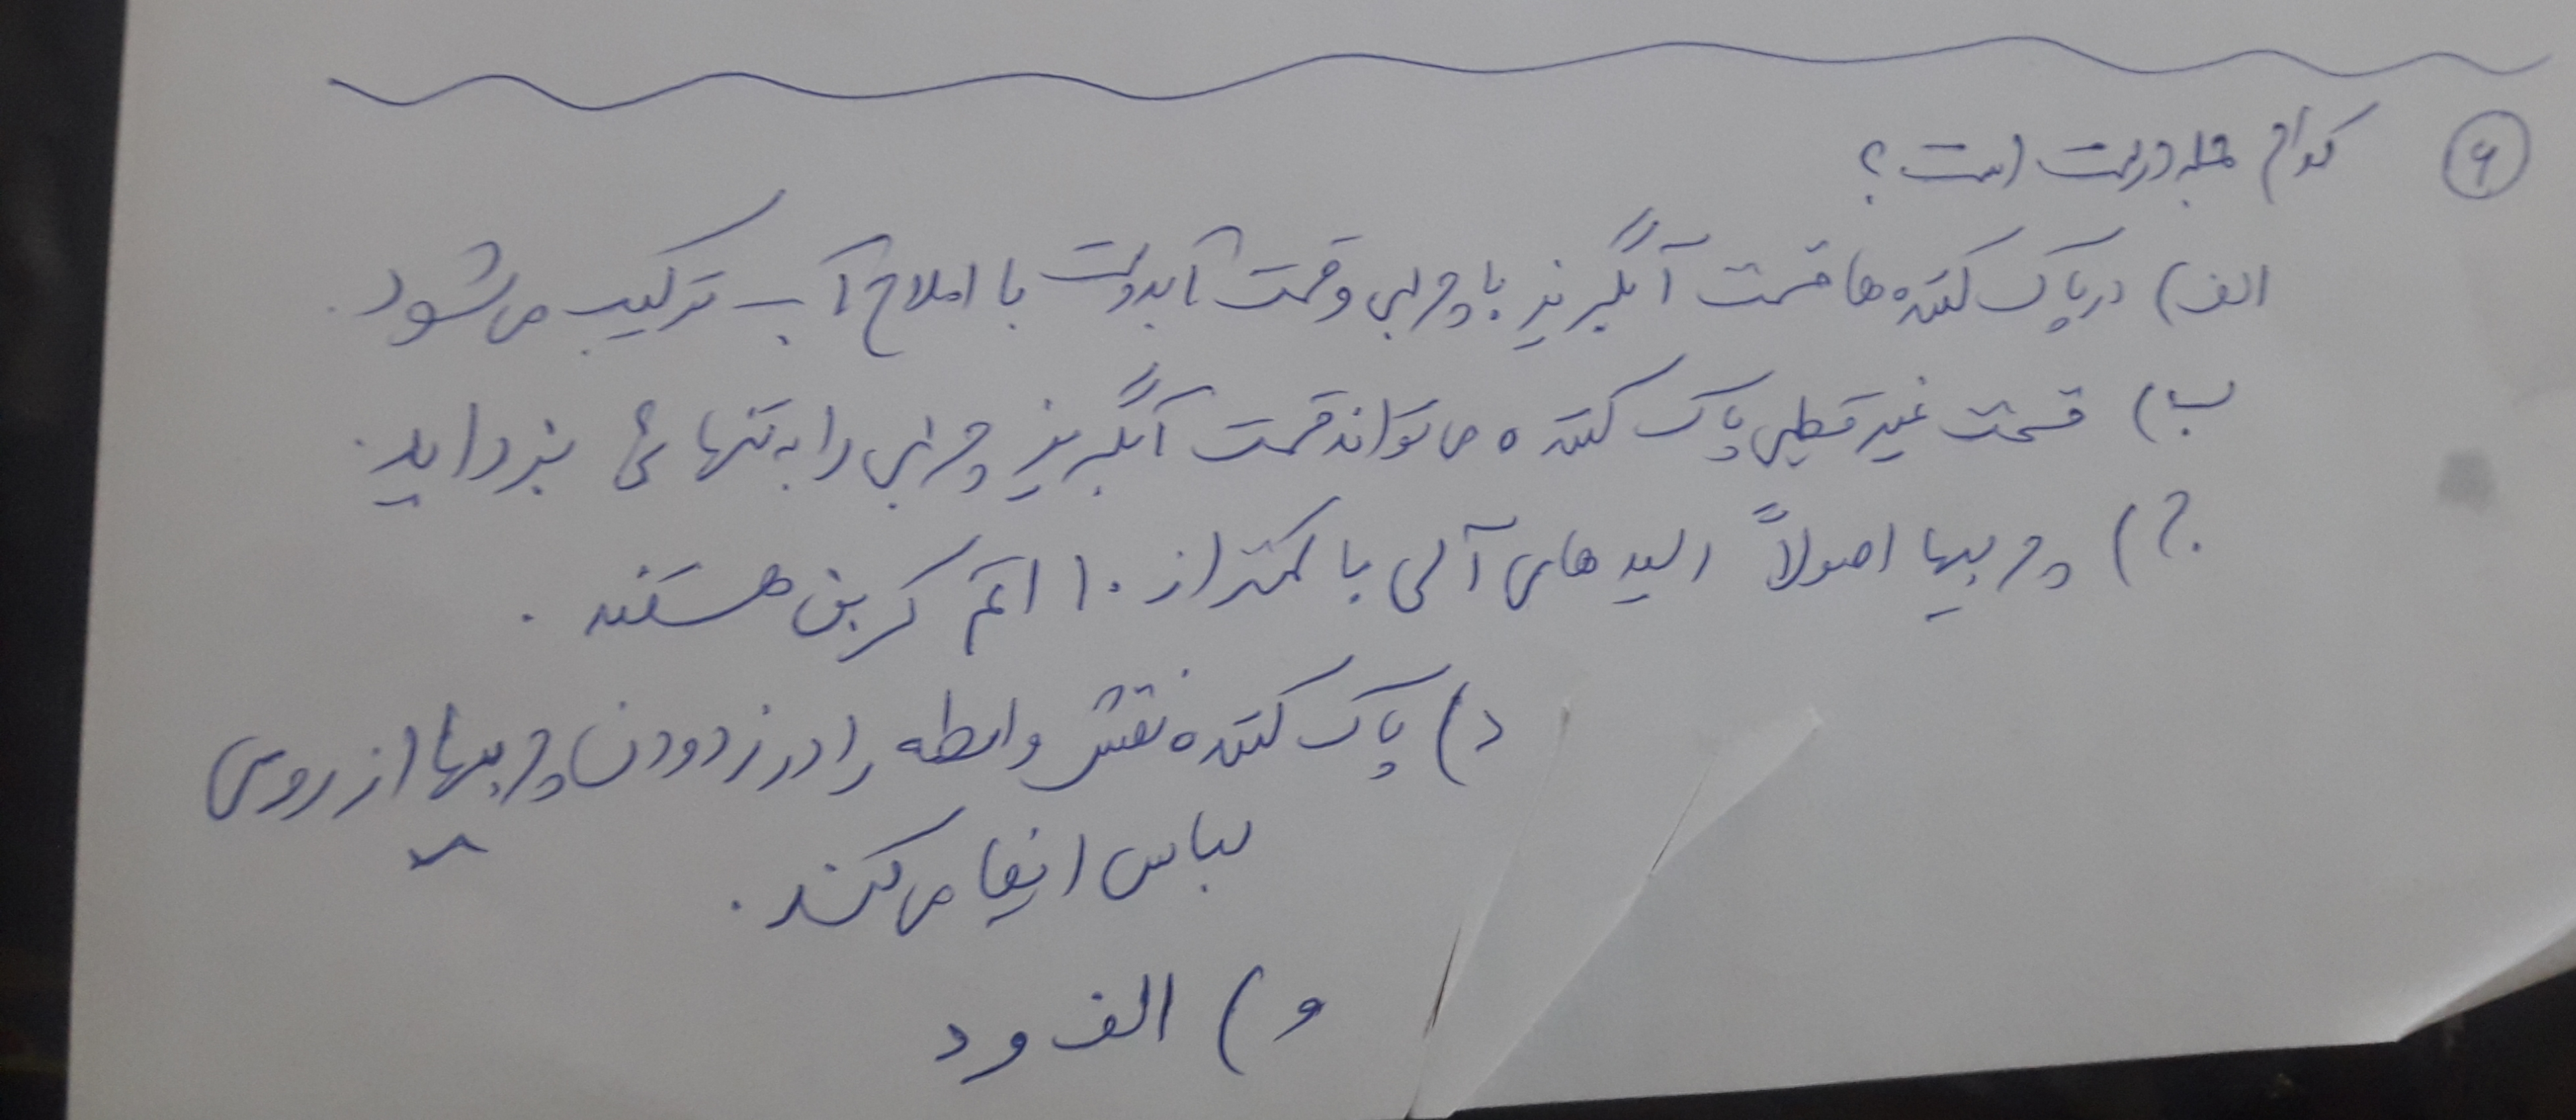 ۶ کدام جمله درست است؟
الف) در پاک کننده ها قسمت آبگریز با چربی و قسمت آبدوست با املاح آب ترکیب می شود.
ب) قسمت غیر قطبی پاک کننده می تواند قسمت آبگریز چربی را به تنهائی بزداید.
ج) چربیها اصولاً اسید های آلی با کمتر از ۱۰ اتم کربن هستند.
د) پاک کننده نقش واسطه را در زدودن چربیها از روی
لباس ایفا می کند.
و) الف و د